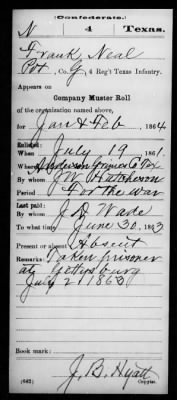 (Confederate.)
N 4 Texas.
Frank Neal
Pvt, Co. G, 4 Reg't Texas Infantry.
Appears on
Company Muster Roll
of the organization named above,
for Jan & Feb, 1864
Enlisted:
When July 19, 1861.
Where Anderson Grimes Co Tex
By whom J W Hutcheson
Period For the war
Last paid:
By whom J. D. Wade
To what time June 30, 1863
Present or absent Absent
Remarks: Taken prisoner
at Gettersburg
July 2 1863
Book mark:
J. B. Hyatt
(642) Copyist.